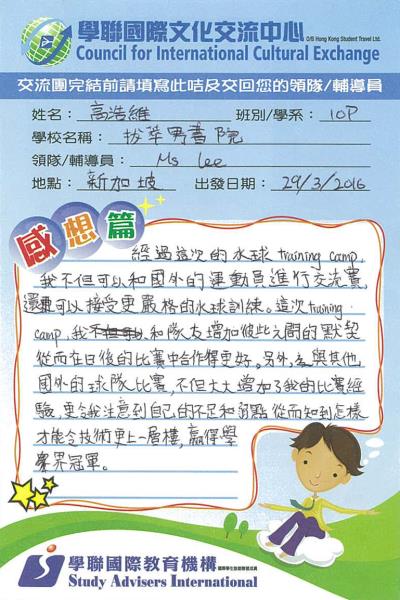 學聯國際文化交流中心
O/B Hong Kong Student Travel Ltd.
Council for International Cultural Exchange
交流團完結前請填寫此咭及交回您的領隊/輔導員
姓名：高浩維 班別/學系：10P
學校名稱：拔萃男書院
領隊/輔導員：Ms Lee
地點：新加坡 出發日期：29/3/2016
感想篇
經過這次的水球 training camp,
我不但可以和國外的運動員進行交流賽,
還可以接受更嚴格的水球訓練。這次 training
camp, 我和隊友增加彼此之間的默契
從而在日後的比賽中合作得更好。另外,為與其他
國外的球隊比賽,不但大大增加了我的比賽經
驗,更令我注意到自己的不足和弱點,從而知到怎樣
才能令技術更上一層樓,贏得學
界冠軍。
學聯國際教育機構
Study Advisers International